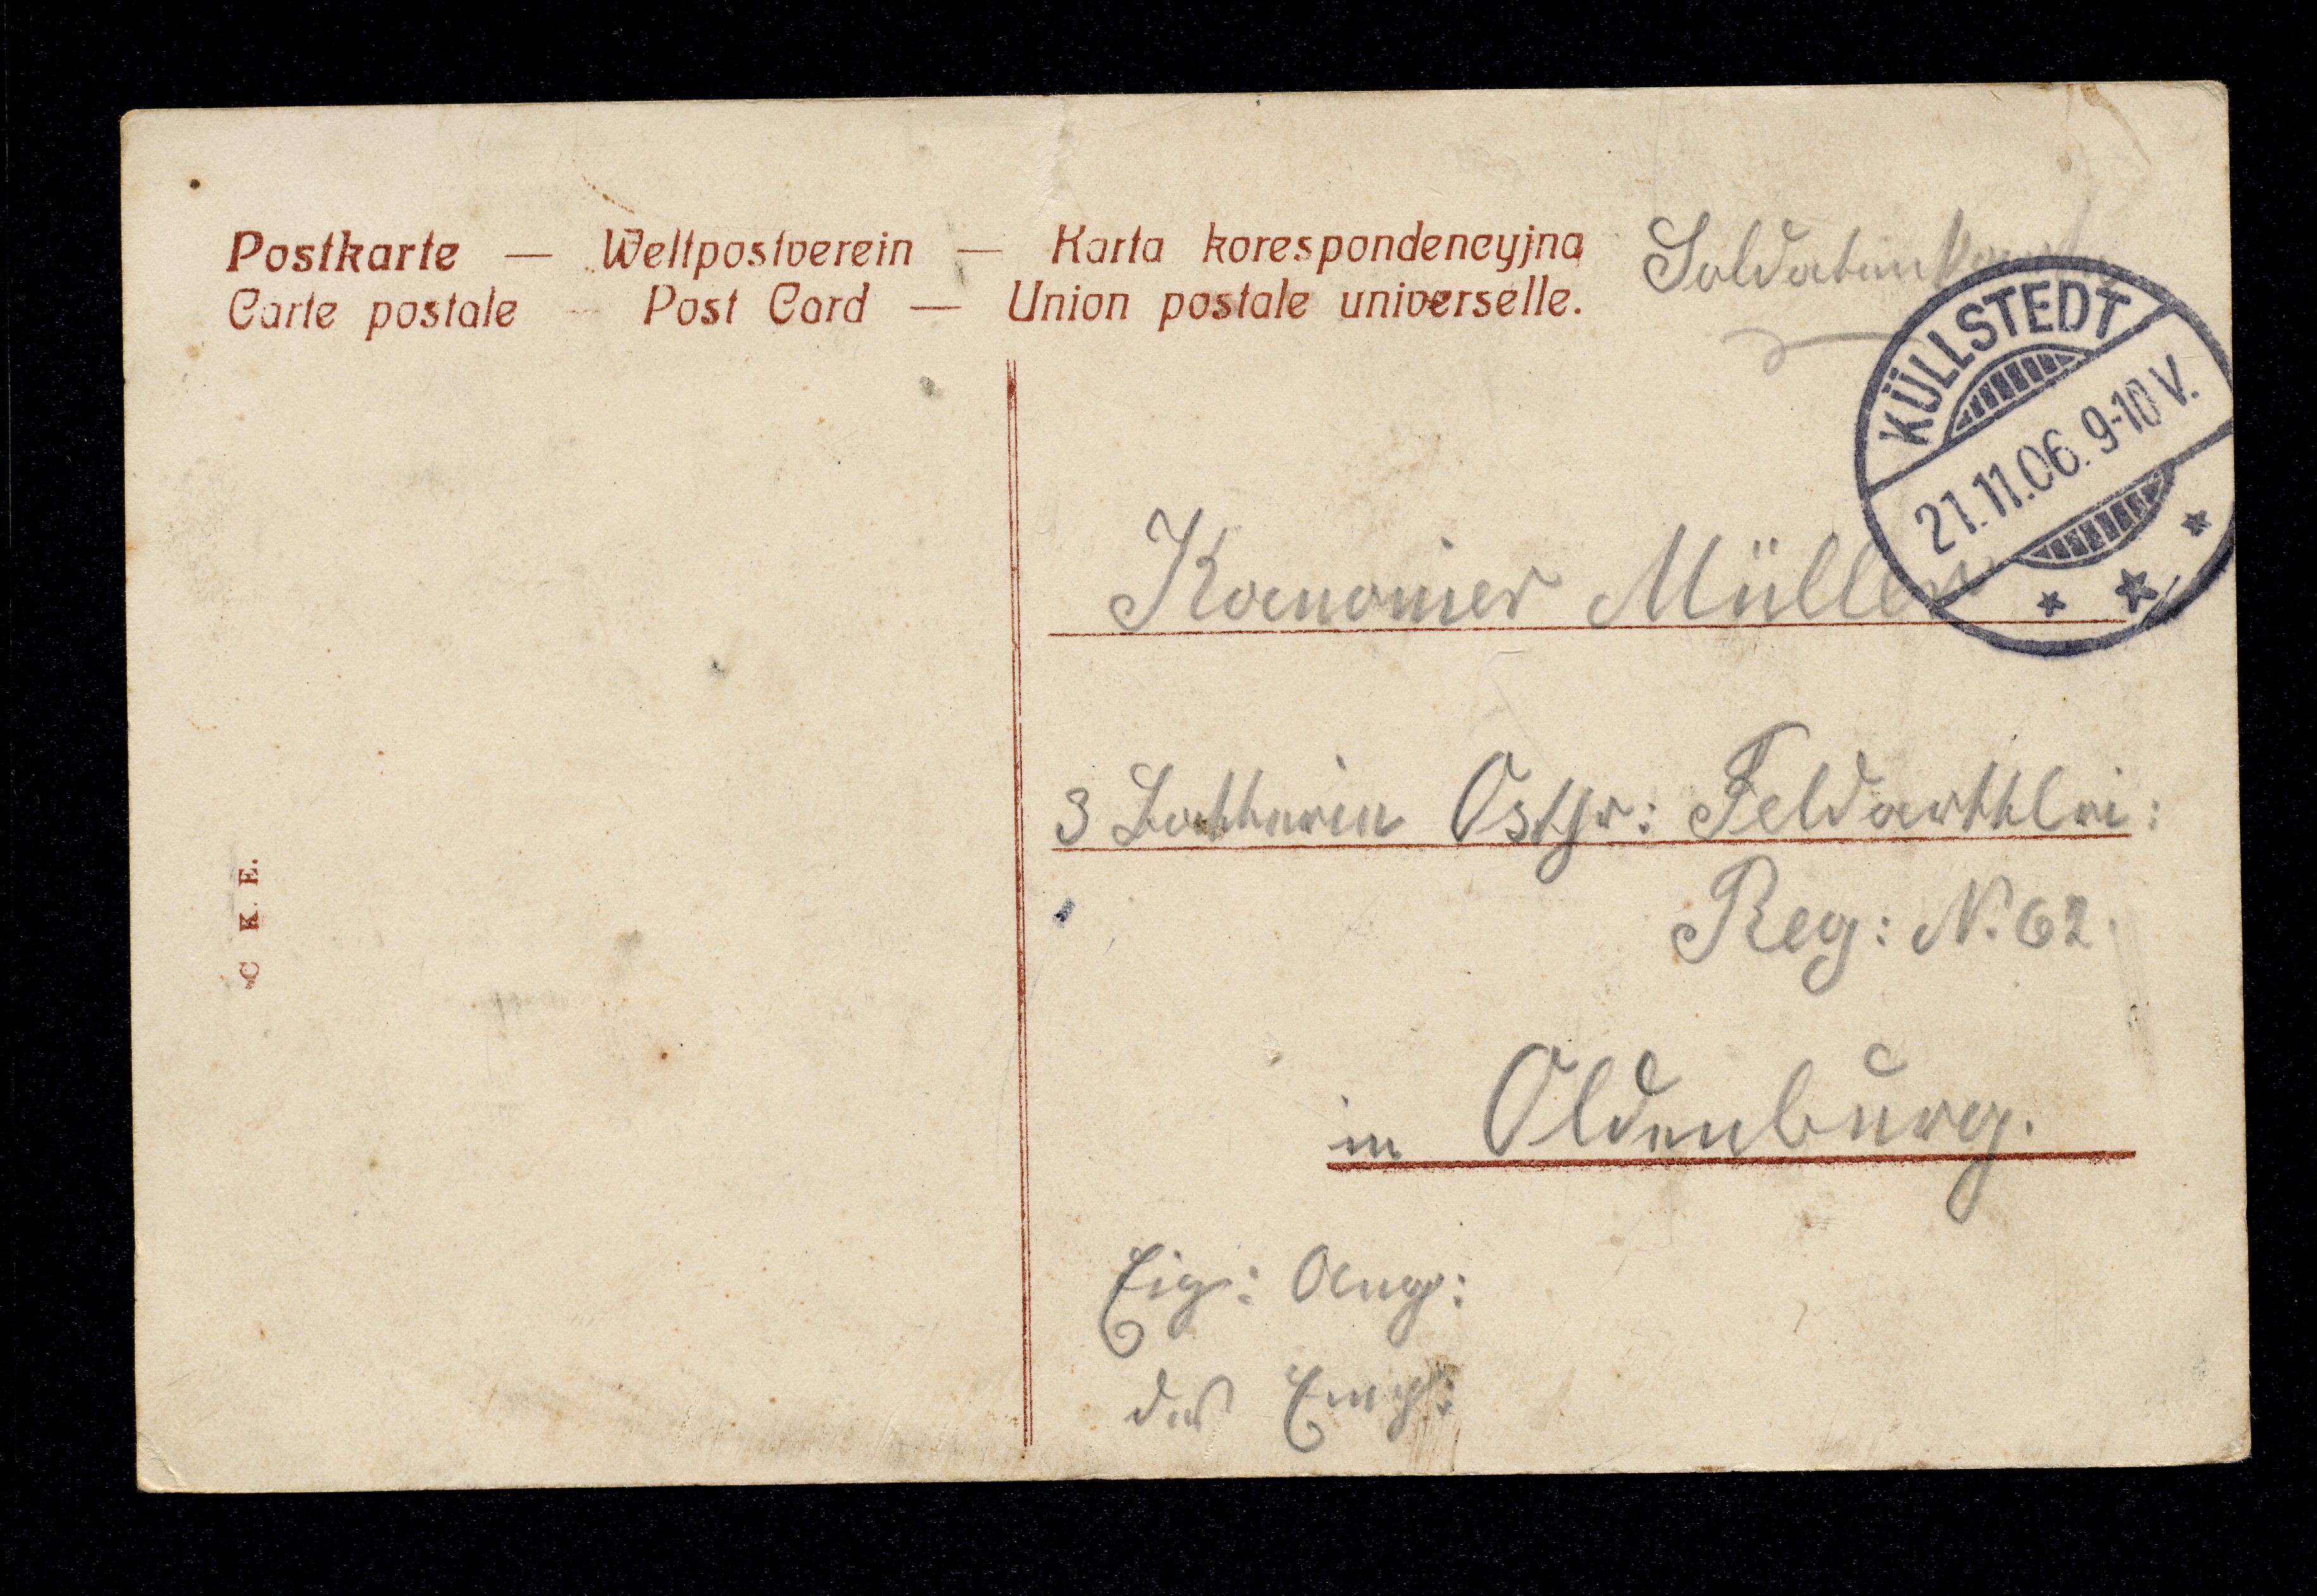 Postkarte — Weltpostverein — Karta korespondencyjna
Carte postale — Post Card — Union postale universelle.
Soldatenkarte
KÜLLSTEDT
21.11.06. 9-10 V.
Kanonier Müller
3 Batterie Ostfr: Feldarttlri:
Reg: N. 62.
in Oldenburg.
Eig: Ang:
des Empf:
C. K. E.